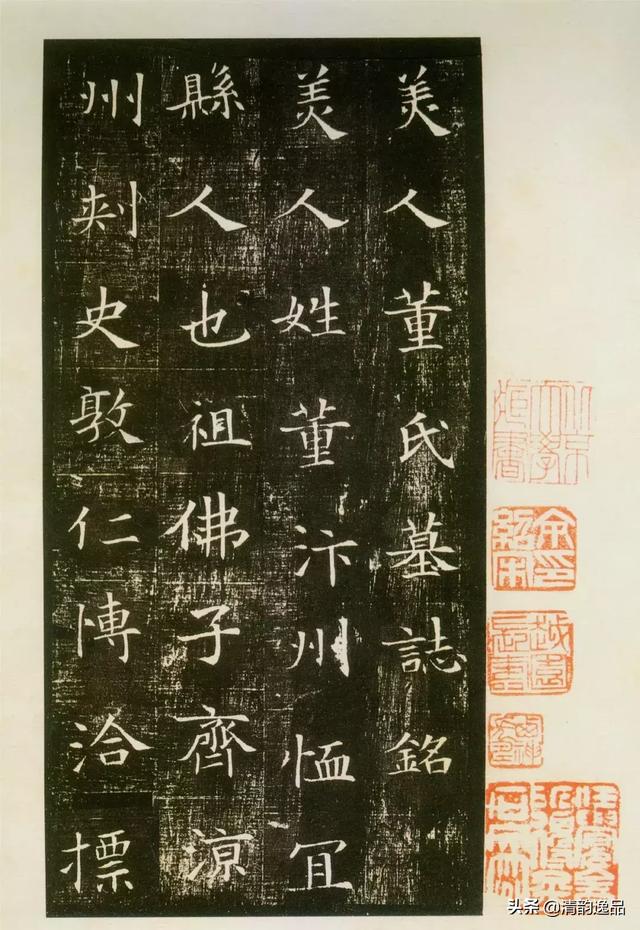 美人董氏墓誌銘
美人姓董汴州恤冝
縣人也祖佛子齊涼
州刺史敦仁博洽標
余印紹宋
头条 @清韵逸品